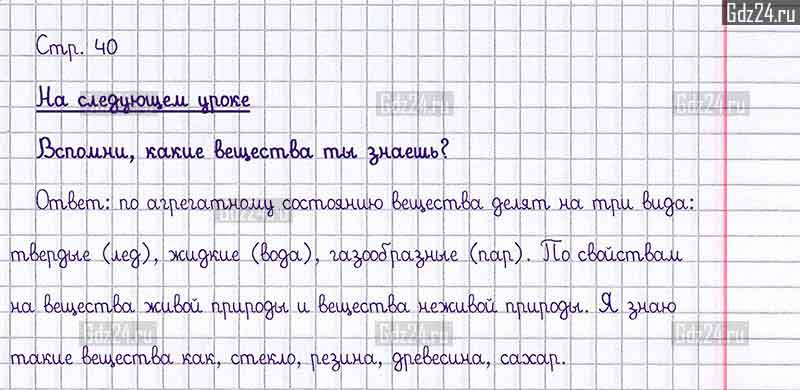 Gdz24.ru
Стр. 40
На следующем уроке
Gdz24.ru Gdz24.ru Gdz24.ru
Вспомни, какие вещества ты знаешь?
Ответ: по агрегатному состоянию вещества делят на три вида:
Gdz24.ru
твердые (лед), жидкие (вода), газообразные (пар). По свойствам
на вещества живой природы и вещества неживой природы. Я знаю
Gdz24.ru Gdz24.ru Gdz24.ru
такие вещества как, стекло, резина, древесина, сахар.